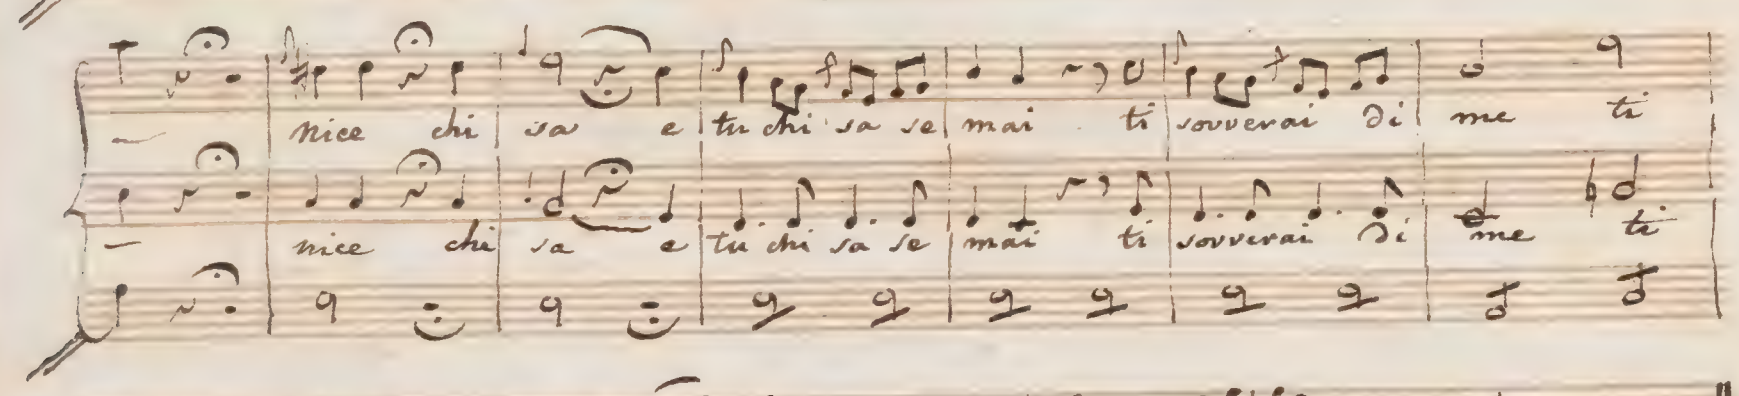 nice chi sa e tu chi sa se mai ti sovverai di me ti
nice chi sa e tu chi sa se mai ti sovverai di me ti